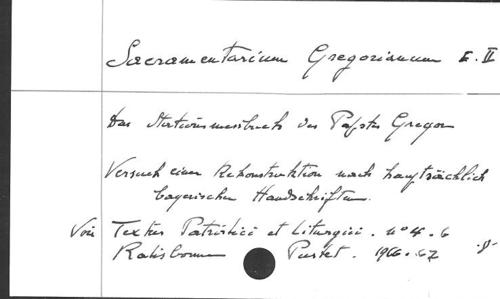 Sacramentarium Gregorianum I. II
Das Stationsmessbuch des Papstes Gregor
Versuch einer Rekonstruktion nach hauptsächlich
bayerischen Handschriften.
Voir Textus Patristici et Liturgici. n° 4. 6
Ratisbonne Pustet. 1966-67